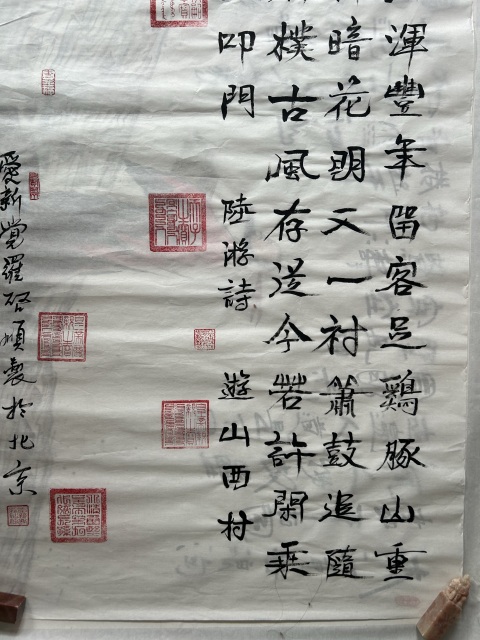 渾豐年留客足鷄豚山重
暗花明又一村簫鼓追隨
樸古風存從今若許閑乘
叩門 陸游詩 遊山西村
愛新覺羅 於北京